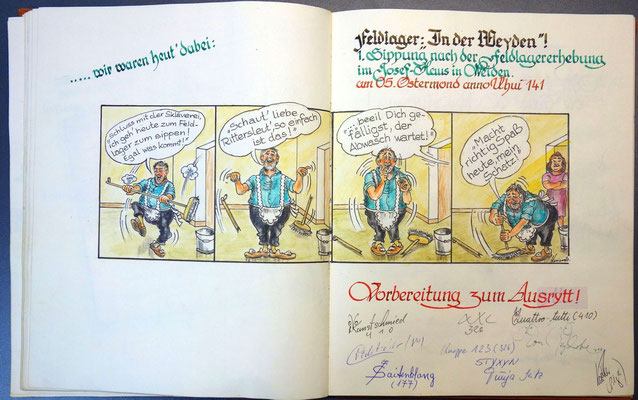 ..... wir waren heut' dabei:
Feldlager: „In der Weyden"!
1. Sippung nach der Feldlagererhebung
im Josef-Haus in Weiden.
am 05. Ostermond anno Uhui 141
„Schluss mit der Sklaverei.
Ich geh heute zum Feld-
lager zum sippen!
Egal was kommt!"
„Schaut' liebe
Rittersleut', so einfach
ist das!"
beeil Dich ge-
fälligst, der
Abwasch wartet!"
„Macht
richtig Spaß
heute, mein
Schatz!"
Vorbereitung zum Ausrytt!
Kunstschmied
410
XXL
322
Quattro-tutti (410)
Knappe 123 (326)
STYXYN
Saitenblang
(177)